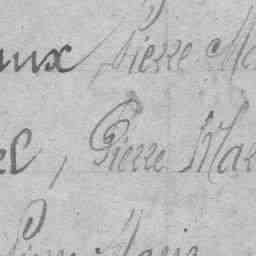 aux, Pierre Ma
el, Pierre Mar
Marie